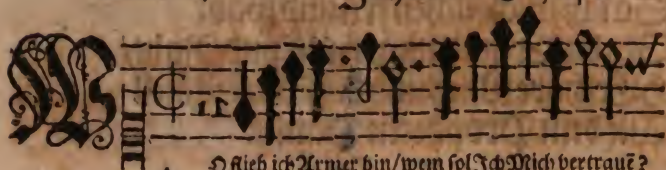 WO flieh ich Armer hin/wem sol Ich Mich vertrauẽ?